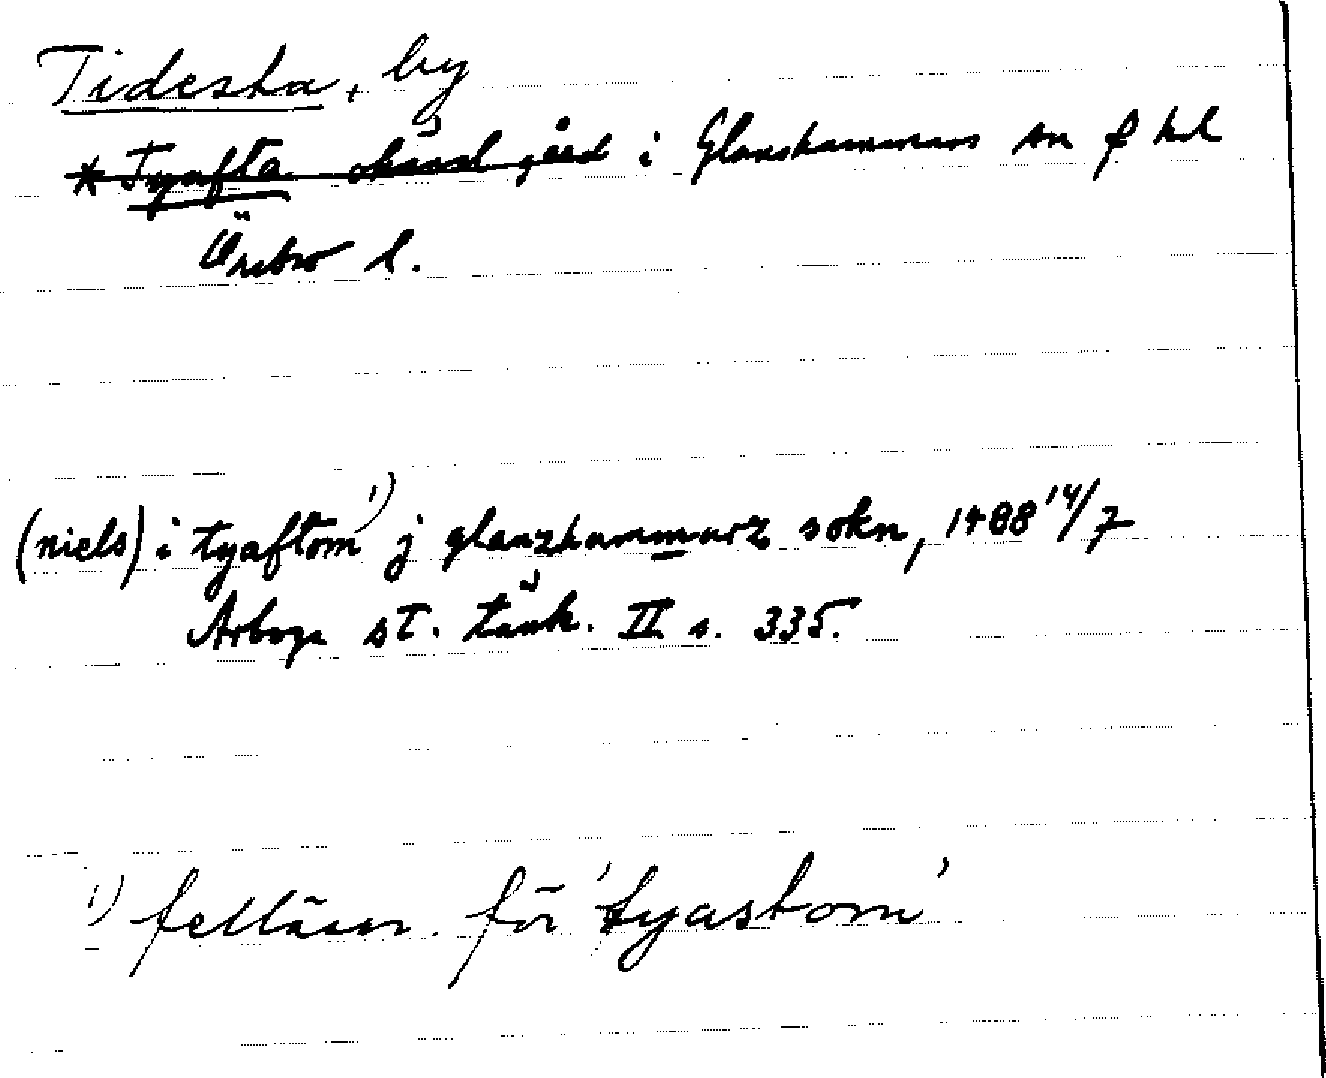 Tidesta, by
* Tyafta okänd gård i Glanshammars sn o hd
Örebro l.
(niels) i tyaftom ¹⁾ j glanzhammarz sokn, 1488 14/7
Arboga st. tänk. II s. 335.
¹⁾ felläsn. för 'tyastom'